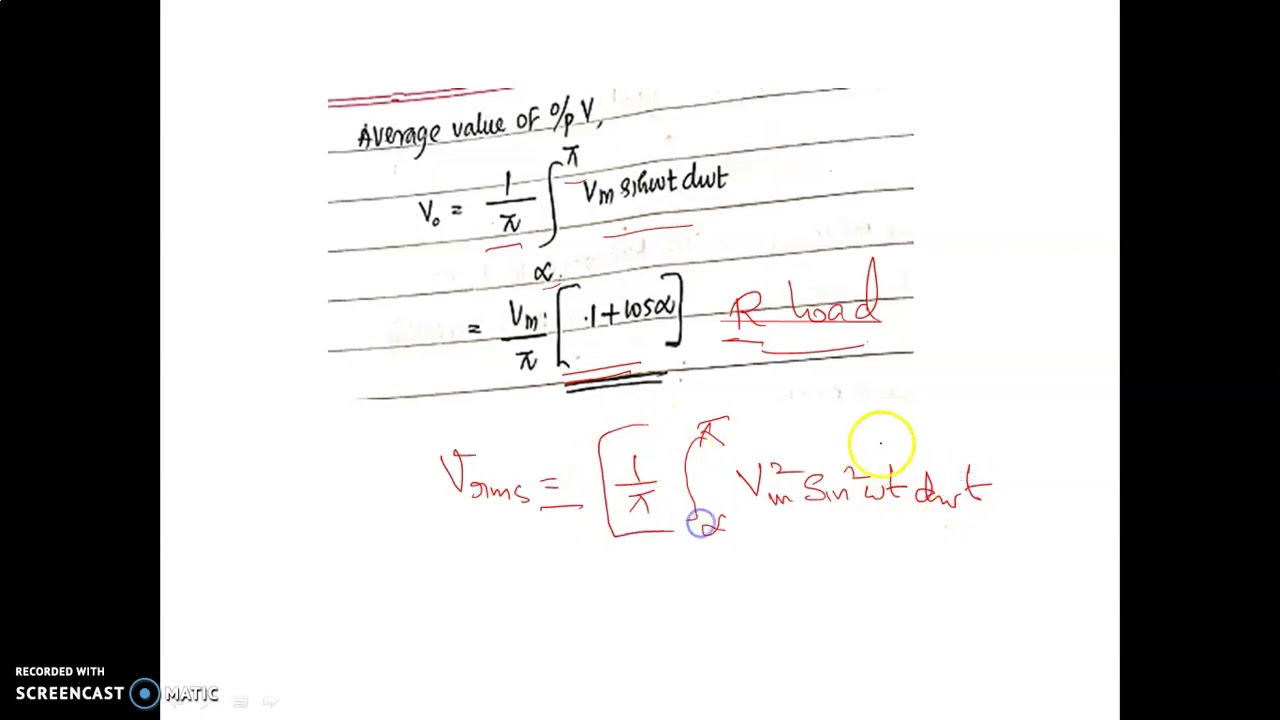 Average value of o/p V,
V₀ = 1/π ∫_α^π Vm sinωt dωt
= Vm/π [1 + cosα]
R Load
Vrms = [1/π ∫_α^π Vm² sin²ωt dωt
RECORDED WITH
SCREENCAST MATIC